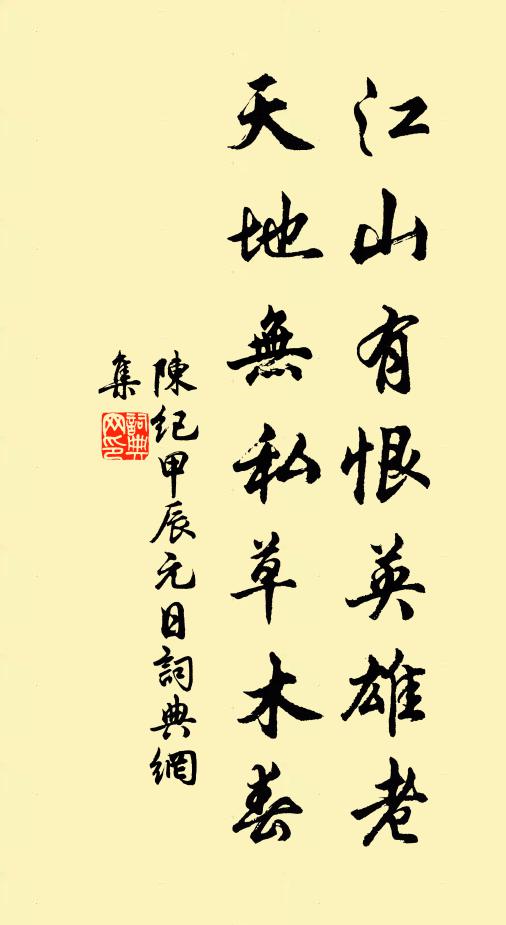 江山有恨英雄老
天地無私草木春
陳紀甲辰元日詞典網
集
詞典
网印